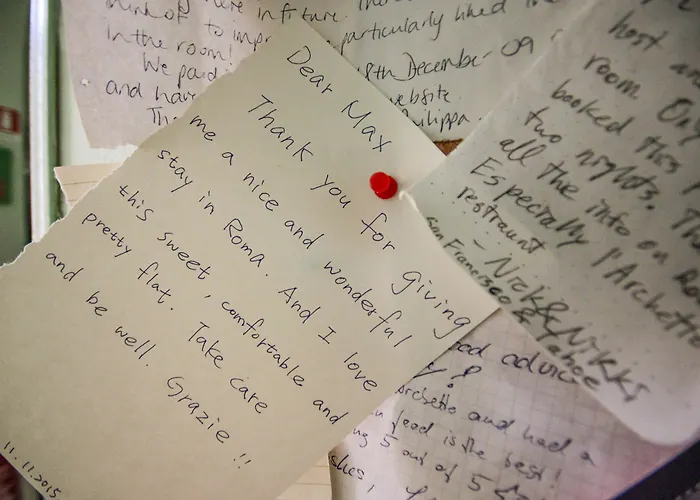 Dear Max
Thank you for giving
me a nice and wonderful
stay in Roma. And I love
this sweet, comfortable and
pretty flat. Take care
and be well. Grazie !!
11.11.2015
in future.
think of to
in the room!
We paid
and have
particularly liked
8th December 09
website
host
room
booked this
two nights.
all the info on
Especially l'Archetto
restraunt
- Nick & Nikki
San Francisco & Tahoe
advice
Archetto and had a
food is the best!
5 out of 5